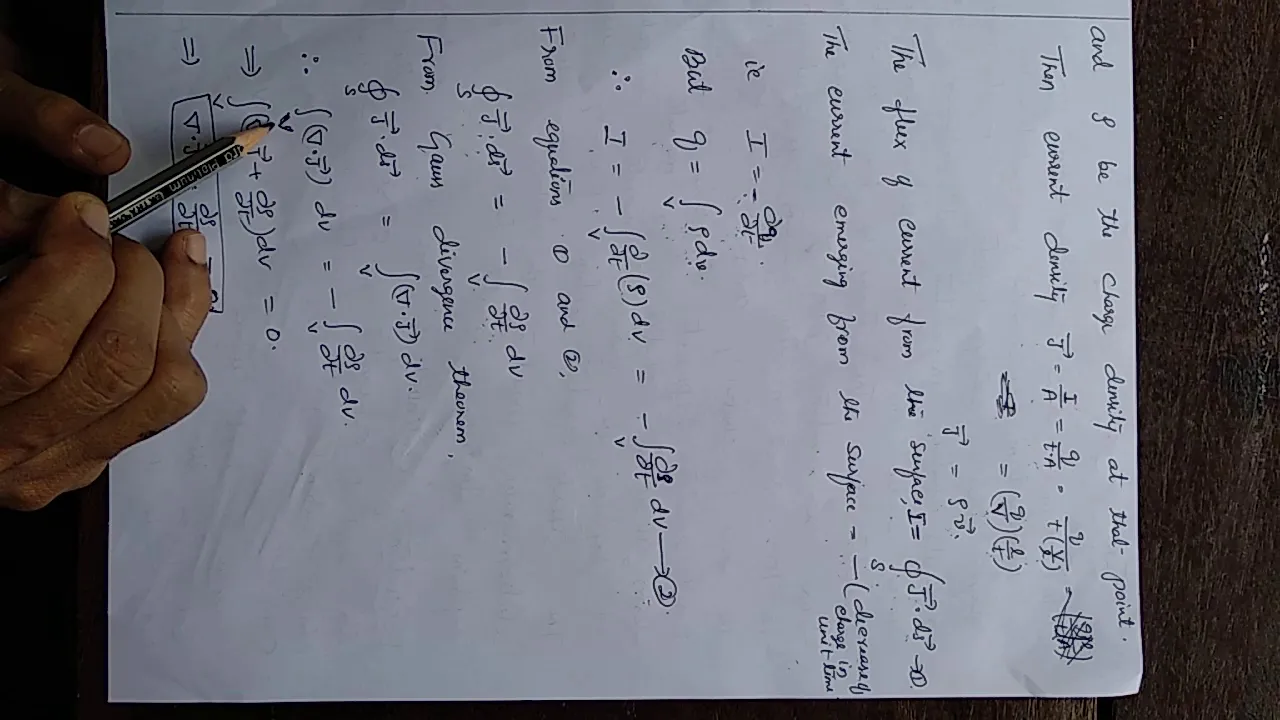 and ρ be the charge density at that point.
Then current density J⃗ = I/A = q/t·A = q/t(V/l) =
= (q/V)(l/t)
J⃗ = ρv⃗.
The flux of current from the surface, I = ∮_S J⃗·ds⃗ → ①.
The current emerging from the surface = −(decrease of charge in unit time
ie I = −∂q/∂t.
But q = ∫_V ρdv.
∴ I = −∫_V ∂/∂t(ρ)dv = −∫_V ∂ρ/∂t dv → ②.
From equations ① and ②,
∮_S J⃗·ds⃗ = −∫_V ∂ρ/∂t dv
From Gauss divergence theorem,
∮_S J⃗·ds⃗ = ∫_V (∇·J⃗) dv.
∴ ∫_V (∇·J⃗) dv = −∫_V ∂ρ/∂t dv.
⇒ ∫_V ( J⃗ + ∂ρ/∂t)dv = 0.
⇒ ∇·J⃗ ∂ρ/∂t =